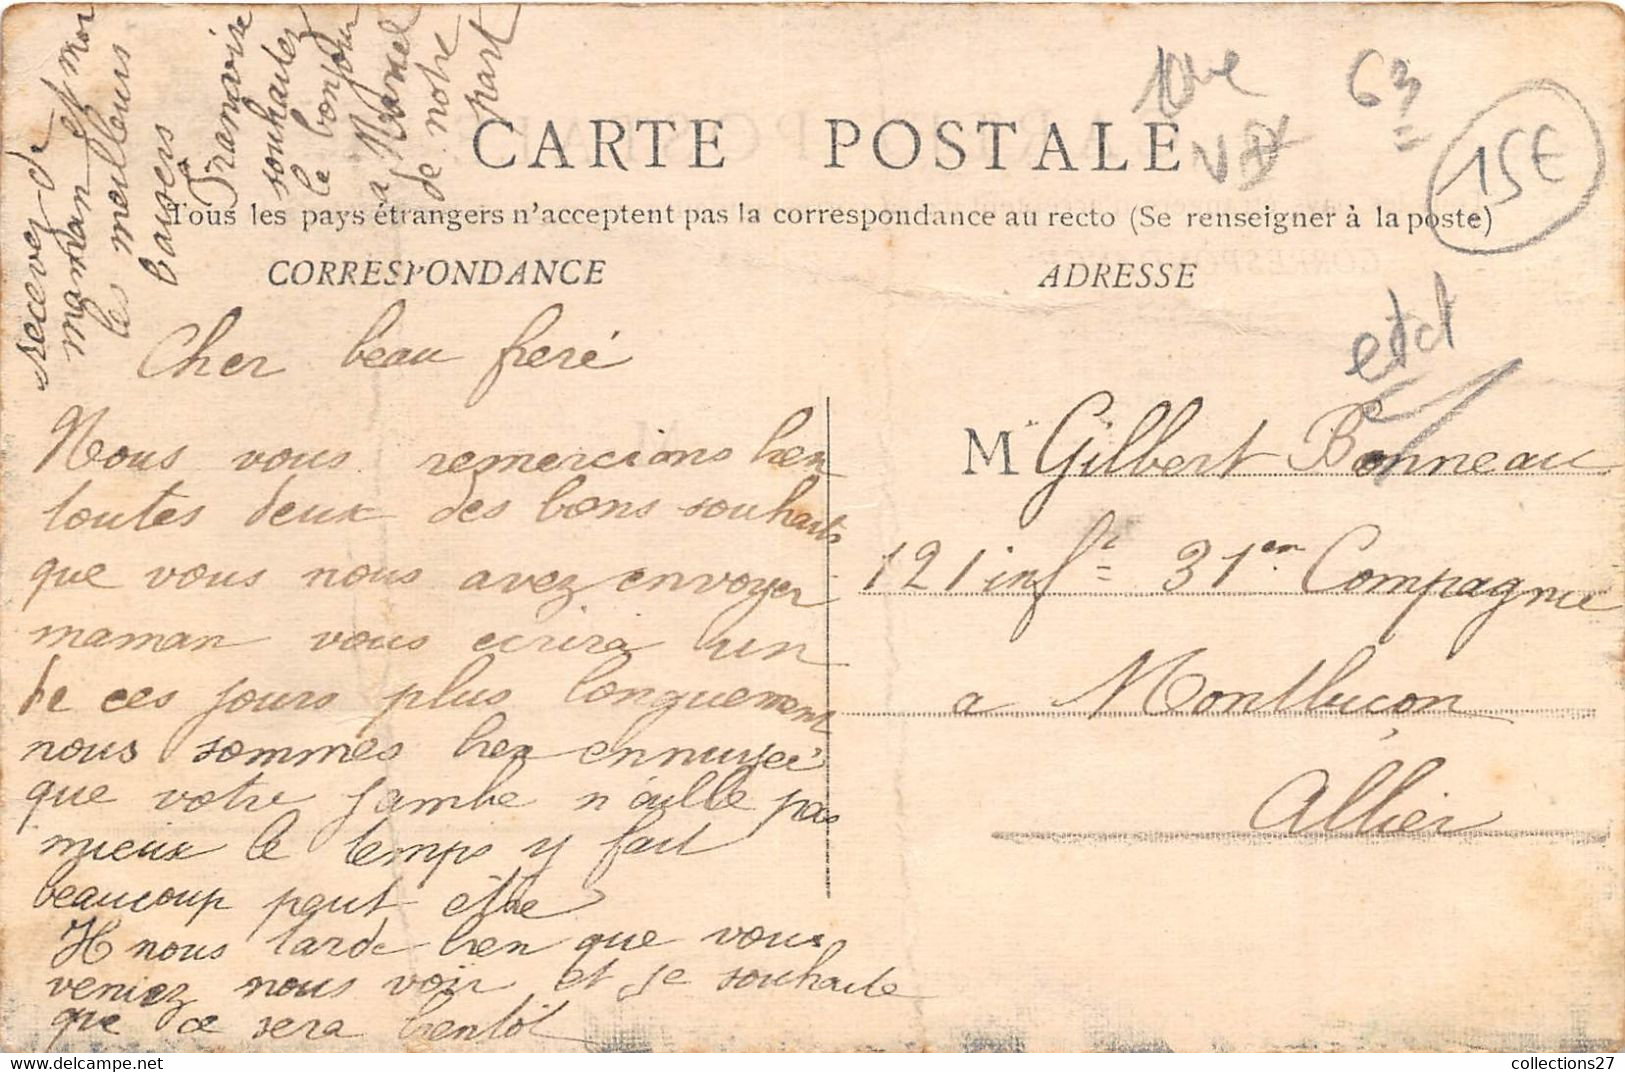 CARTE POSTALE
Tous les pays étrangers n'acceptent pas la correspondance au recto (Se renseigner à la poste)
CORRESPONDANCE
ADRESSE
Cher beau freré
Nous vous remercions bien
toutes deux des bons souhaits
que vous nous avez envoyer
maman vous ecrira un
de ces jours plus longuement
nous sommes bien ennuyeé
que votre jambe n'aille pas
mieux le temps y fait
beaucoup peut être
Il nous tarde bien que vous
veniez nous voir et je souhaite
que ce sera bientôt
recevez de
maman et moi
les meilleurs
baisers
souhaitez
le bonjour
a Marcel
de notre
part
M Gilbert Bonneau
121 inf 31em Compagnie
a Montluçon
Allier
63
15€
etd
collections27